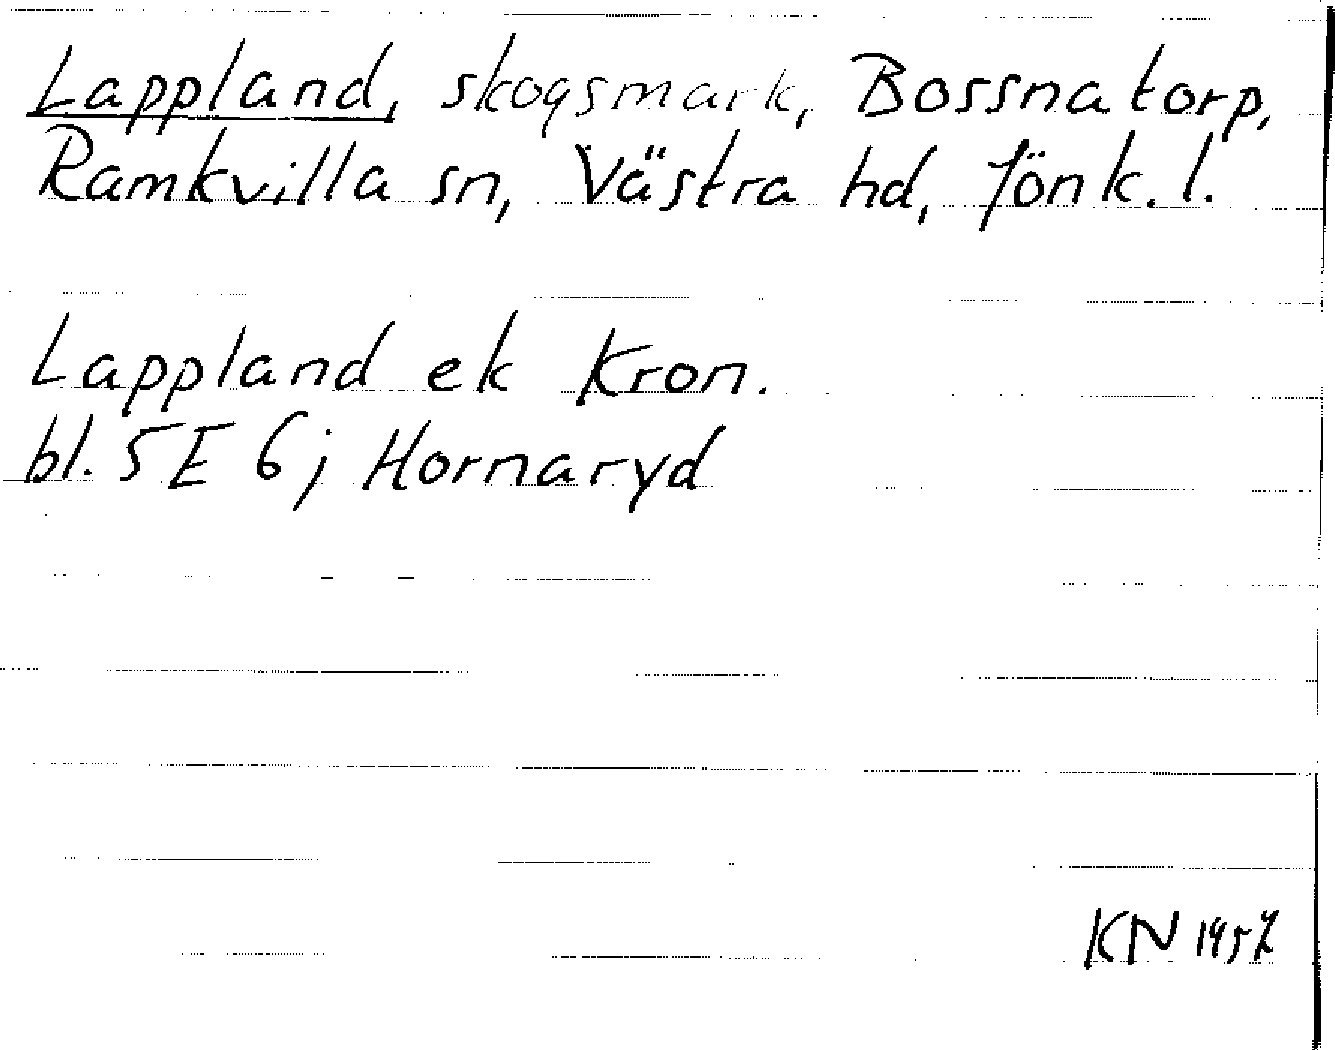 Lappland, skogsmark, Bossnatorp,
Ramkvilla sn, Västra hd, Jönk. l.
Lappland ek Kron.
bl. 5E 6j Hornaryd
KN 1957